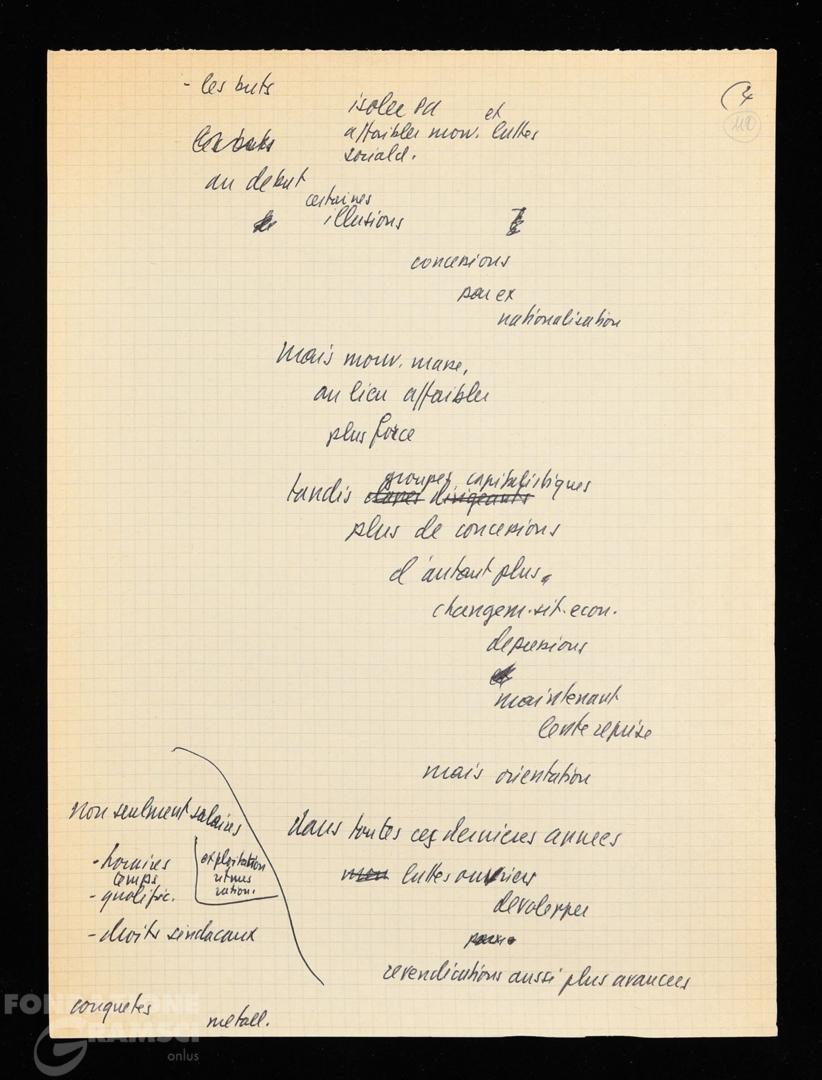 - les buts
(4
112
isoler Pd et
affaiblir mouv. luttes
sociald.
les buts
au debut
certaines
illusions
concessions
par ex
nationalisation
Mais mouv. masse,
au lieu affaiblir
plus force
groupes capitalistiques
tandis classes dirigeants
plus de concessions
d'autant plus
changem. sit. econ.
depressions
maintenant
lente reprise
mais orientation
non seulment salaires
- horaires
temps
- qualific.
exploitation
ritmes
ration.
- droits sindacaux
dans toutes ces dernieres annees
mou luttes ouvriers
developper
revendications aussi plus avancees
conquetes
metall.
FONDAZIONE
GRAMSCI
onlus